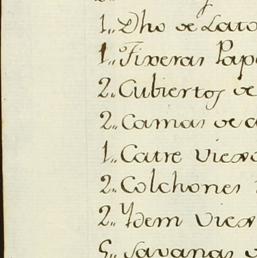 1.. Dho de Lato
1.. Tixeras Pap
2.. Cubiertos de
2.. Camas de
1.. Catre viexo
2.. Colchones
2.. Ydem viex
5.. Savanas